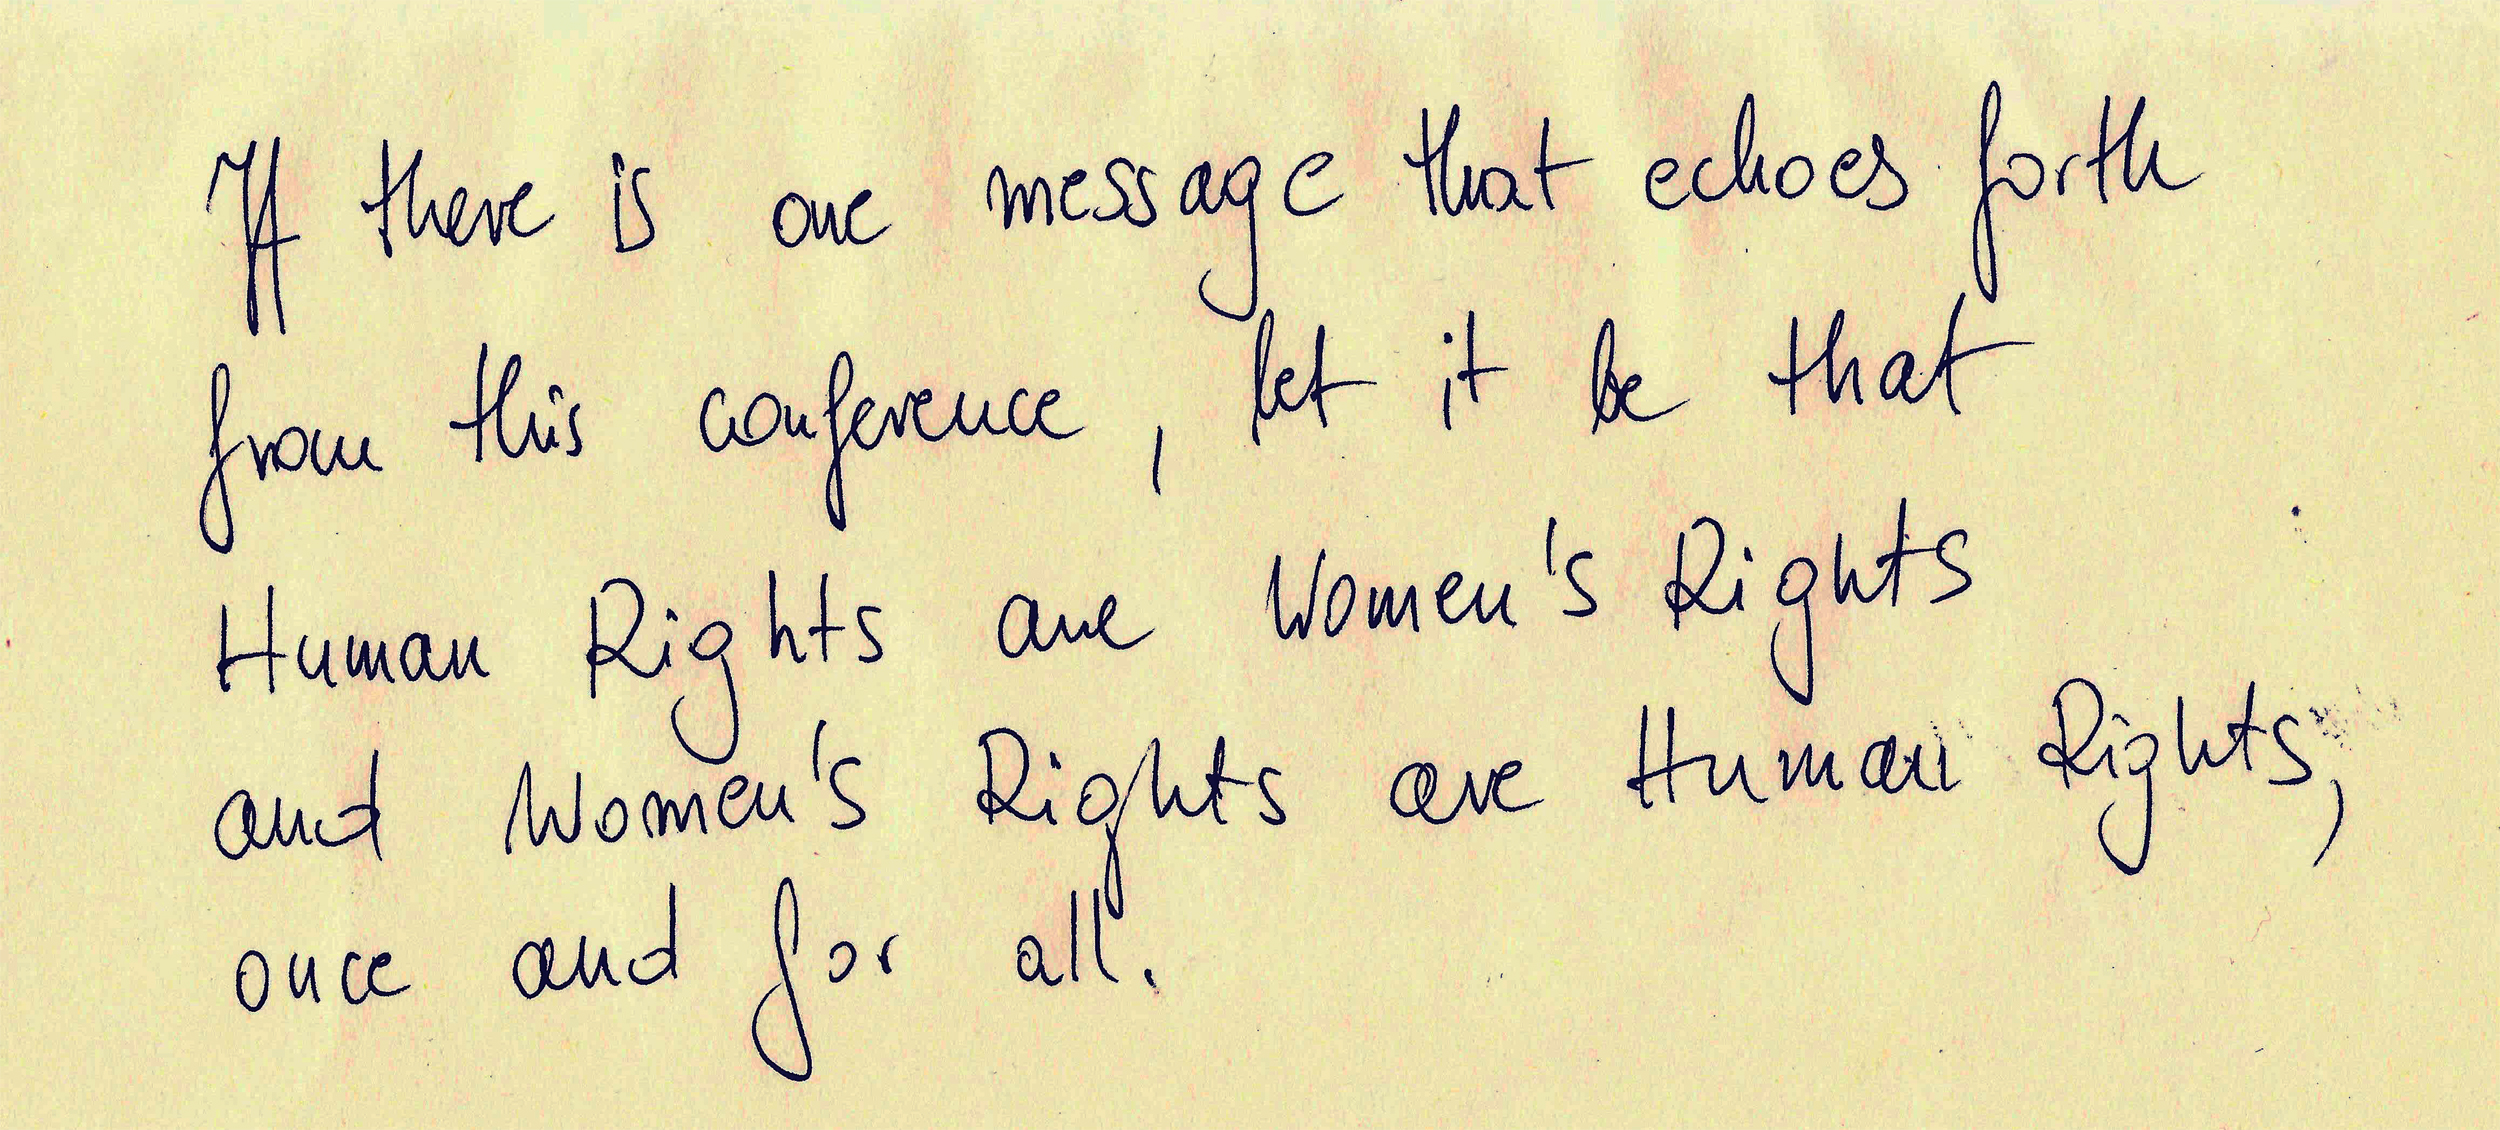 If there is one message that echoes forth
from this conference, let it be that
Human Rights are Women's Rights
and Women's Rights are Human Rights,
once and for all.